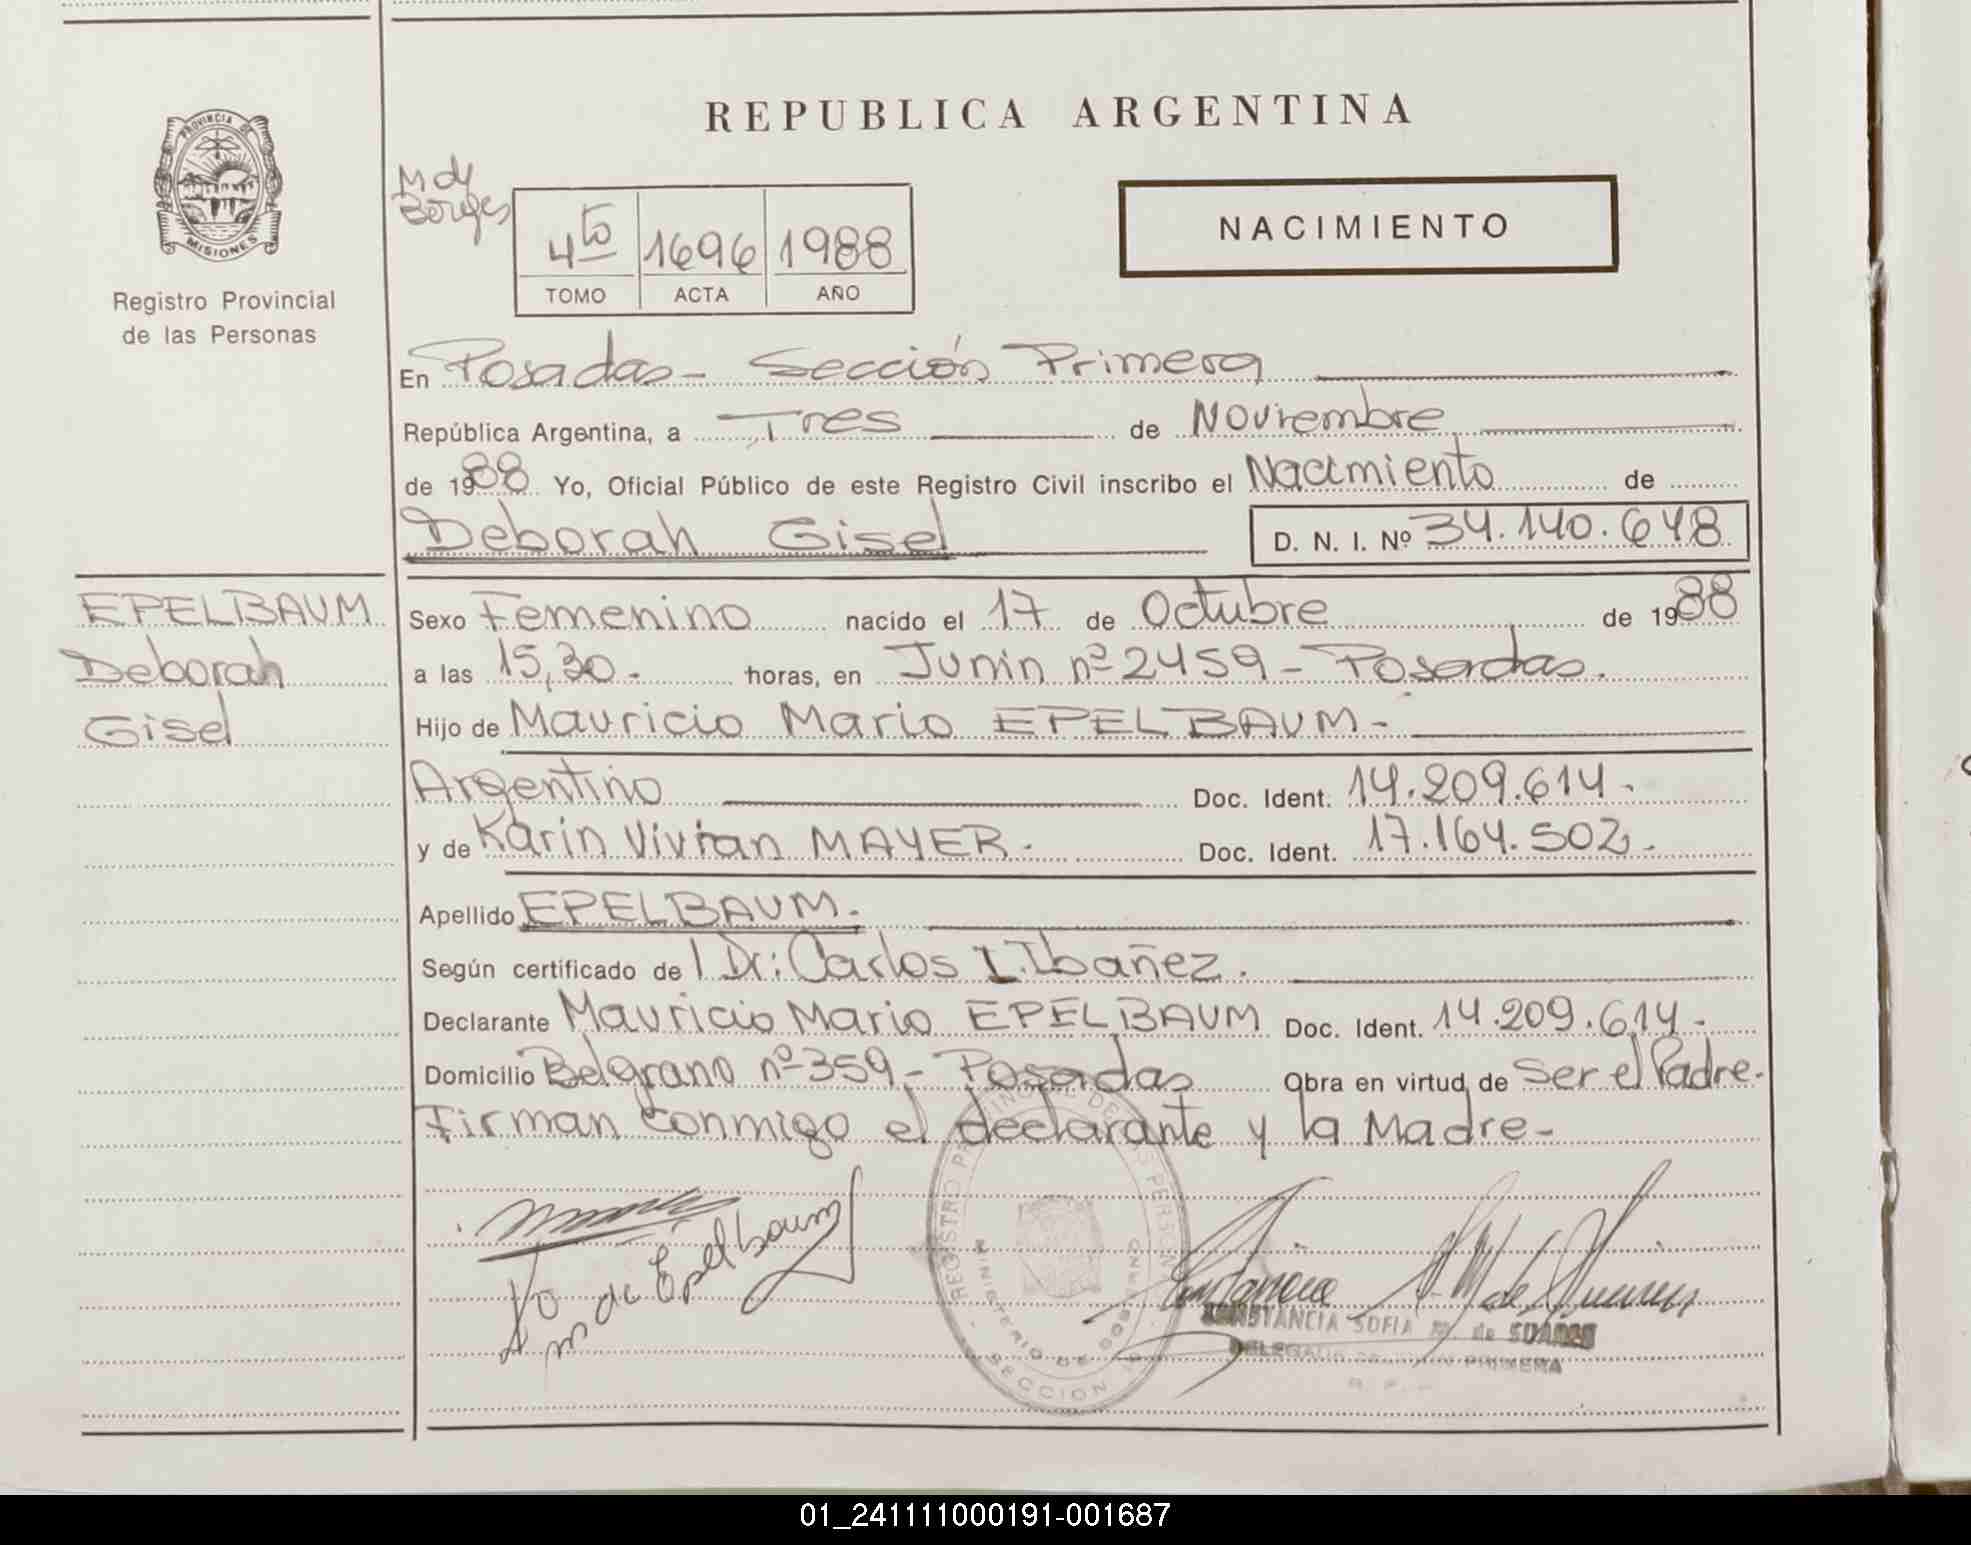 PROVINCIA DE
MISIONES
Registro Provincial
de las Personas
EPELBAUM
Deborah
Gisel
REPUBLICA ARGENTINA
Borges
4to 1696 1988
TOMO ACTA AÑO
NACIMIENTO
En Posadas - Sección Primera
República Argentina, a Tres de Noviembre
de 1988 Yo, Oficial Público de este Registro Civil inscribo el Nacimiento de
Deborah Gisel D. N. I. Nº 34.140.648
Sexo Femenino nacido el 17 de Octubre de 1988
a las 15,30. horas, en Junin nº 2459 - Posadas.
Hijo de Mauricio Mario EPELBAUM -
Argentino Doc. Ident. 14.209.614.
y de Karin Vivian MAYER. Doc. Ident. 17.164.502.
Apellido EPELBAUM.
Según certificado de l Dr: Carlos I. Ibañez.
Declarante Mauricio Mario EPELBAUM Doc. Ident. 14.209.614.
Domicilio Belgrano nº 359 - Posadas Obra en virtud de Ser el Padre.
Firman conmigo el declarante y la Madre -
de Epelbaum
REGISTRO PROVINCIAL DE LAS PERSONAS
MINISTERIO DE GOBIERNO
SECCION 1a
CONSTANCIA SOFIA M. de SUAREZ
PRIMERA
01_241111000191-001687